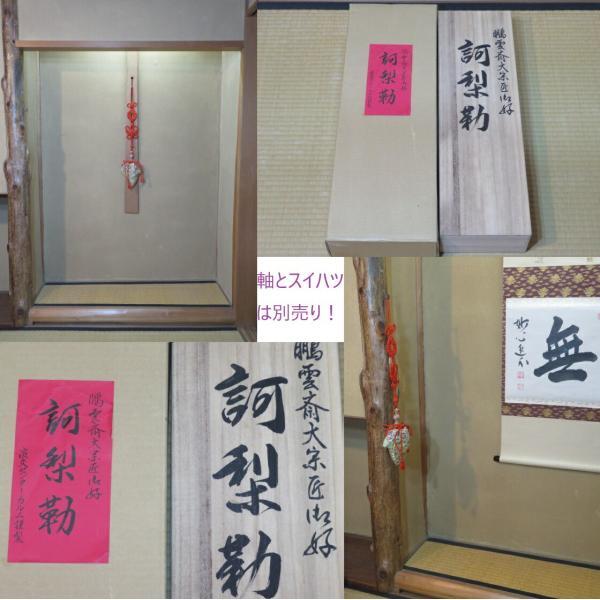 訶梨勒
鵬雲斎大宗匠御好
訶梨勒
軸とスイハツ
は別売り！
鵬雲斎大宗匠御好
訶梨勒
鵬雲斎大宗匠御好
訶梨勒
無